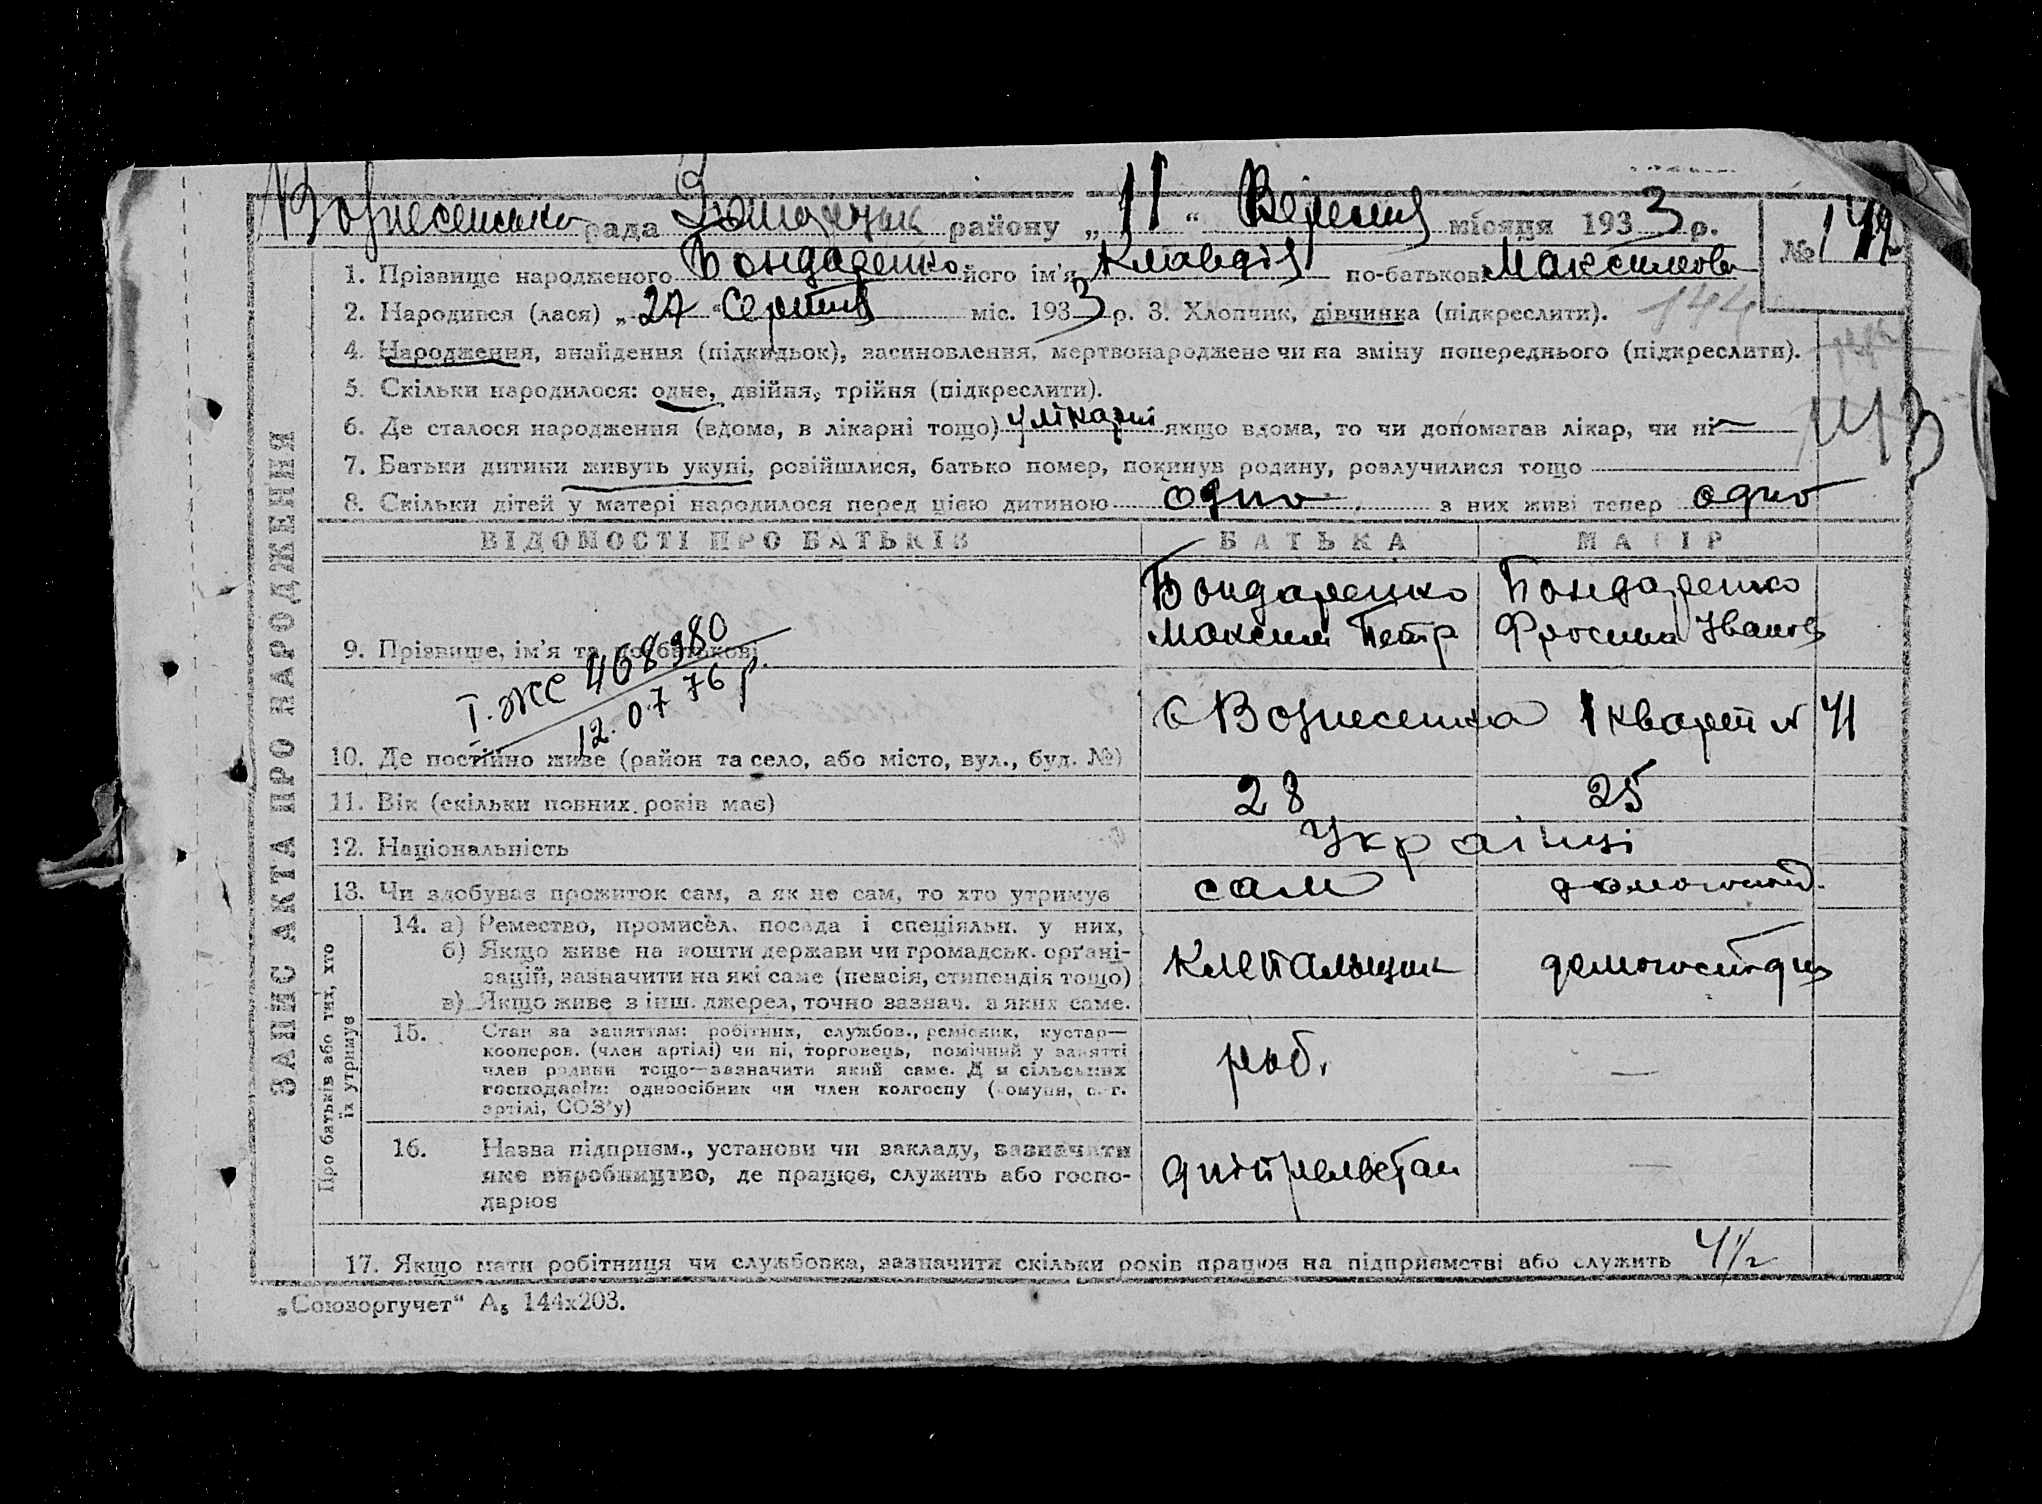 Вознесенська рада района району „11“ Вересня місяця 1933 р.
№ 142
1. Прізвище народженого Бондаренко його ім'я Клавдія по-батькові Максимова
2. Народився (лася) „27“ Серпня міс. 1933 р. 3. Хлопчик, дівчинка (підкреслити).
144
4. Народження, знайдення (підкидьок), засиновлення, мертвонароджене чи на зміну попереднього (підкреслити).
5. Скільки народилося: одне, двійня, трійня (підкреслити).
6. Де сталося народження (вдома, в лікарні тощо) у лікарні якщо вдома, то чи допомагав лікар, чи ні —
7. Батьки дитини живуть укупі, розійшлися, батько помер, покинув родину, розлучилися тощо
8. Скільки дітей у матері народилося перед цією дитиною одно з них живі тепер одно
ЗАПИС АКТА ПРО НАРОДЖЕННЯ
ВІДОМОСТІ ПРО БАТЬКІВ БАТЬКА МАТІР
9. Прізвище, ім'я та по-батькові
Бондаренко
Максим Петр
Бондаренко
Фросина Іванов
І. ЖС 468980
12.07 76 р.
10. Де постійно живе (район та село, або місто, вул., буд. №)
с Вознесенка 1 квартал № 41
11. Вік (скільки повних років має) 28 25
12. Національність Українці
13. Чи здобував прожиток сам, а як не сам, то хто утримує сам домогоспод.
Про батьків або тих, хто
їх утримує
14. а) Ремество, промисел, посада і спеціяльн. у них,
б) Якщо живе на кошти держави чи громадськ. орґані-
зацій, зазначити на які саме (пенсія, стипендія тощо)
в) Якщо живе з інш. джерел, точно зазнач. з яких саме.
клепальщик домогосподня
15. Стан за заняттям: робітник, службов., ремісник, кустар—
кооперов. (член артілі) чи ні, торговець, помічний у занятті
член родини тощо—зазначити який саме. Для сільських
господарів: одноосібник чи член колгоспу (комуни, с.-г.
артілі, СОЗ'у)
роб. —
16. Назва підприєм., установи чи закладу, зазначити
яке виробництво, де працює, служить або госпо-
дарює
—
17. Якщо мати робітниця чи службовка, зазначити скільки років працює на підприємстві або служить
„Союзоргучет“ А₅ 144х203.